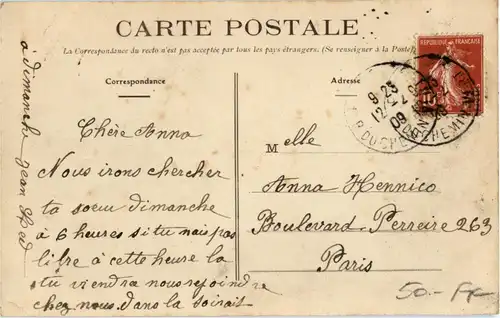 CARTE POSTALE
La Correspondance du recto n'est pas acceptée par tous les pays étrangers. (Se renseigner à la Poste)
Correspondance
Adresse
REPUBLIQUE FRANÇAISE
10
9 25
12
09
à dimanche Jean
Chère Anna
Nous irons chercher
ta soeur dimanche
à 6 heures si tu n'ais pas
libre à cette heure la
tu viendra nous rejoindre
chez nous dans la soirait
Melle
Anna Hennico
Boulevard Perreire 263
Paris
50.- Fr